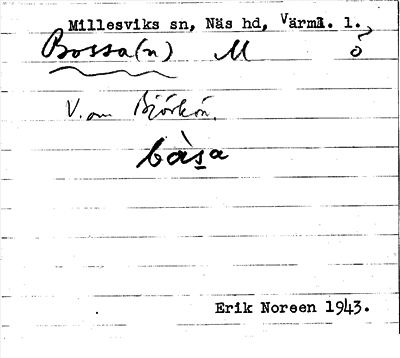 Millesviks sn, Näs hd, Värml. l.
Bossa(n) M ö?
V. om Björkön.
bàs̲a
Erik Noreen 1943.